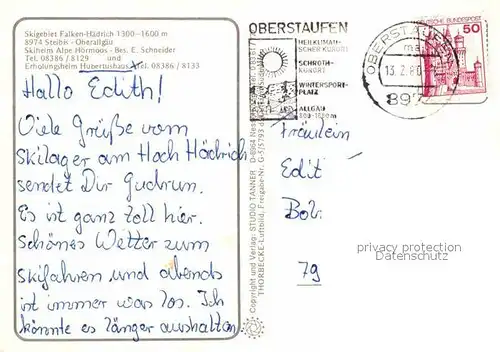 Skigebiet Falken-Hädrich 1300-1600 m
8974 Steibis - Oberallgäu
Skiheim Alpe Hörmoos - Bes. E. Schneider
Tel. 08386 / 8129 und
Erholungsheim Hubertushaus Tel. 08386 / 8133
Hallo Edith!
Viele Grüße vom
Skilager am Hoch Hädrich
sendet Dir Gudrun.
Es ist ganz toll hier.
Schönes Wetter zum
Skifahren und abends
ist immer was los. Ich
könnte es länger aushalten.
Copyright und Verlag: STUDIO TANNER
THORBECKE-Luftbild, Freigabe-Nr.
OBERSTAUFEN
HEILKLIMATI-
SCHER KURORT
SCHROTH-
KURORT
WINTERSPORT-
PLATZ
ALLGÄU
OBERSTAUFEN
13.2.80
897
DEUTSCHE BUNDESPOST
50
Fräulein
Edit
Bob.
79
privacy protection
Datenschutz